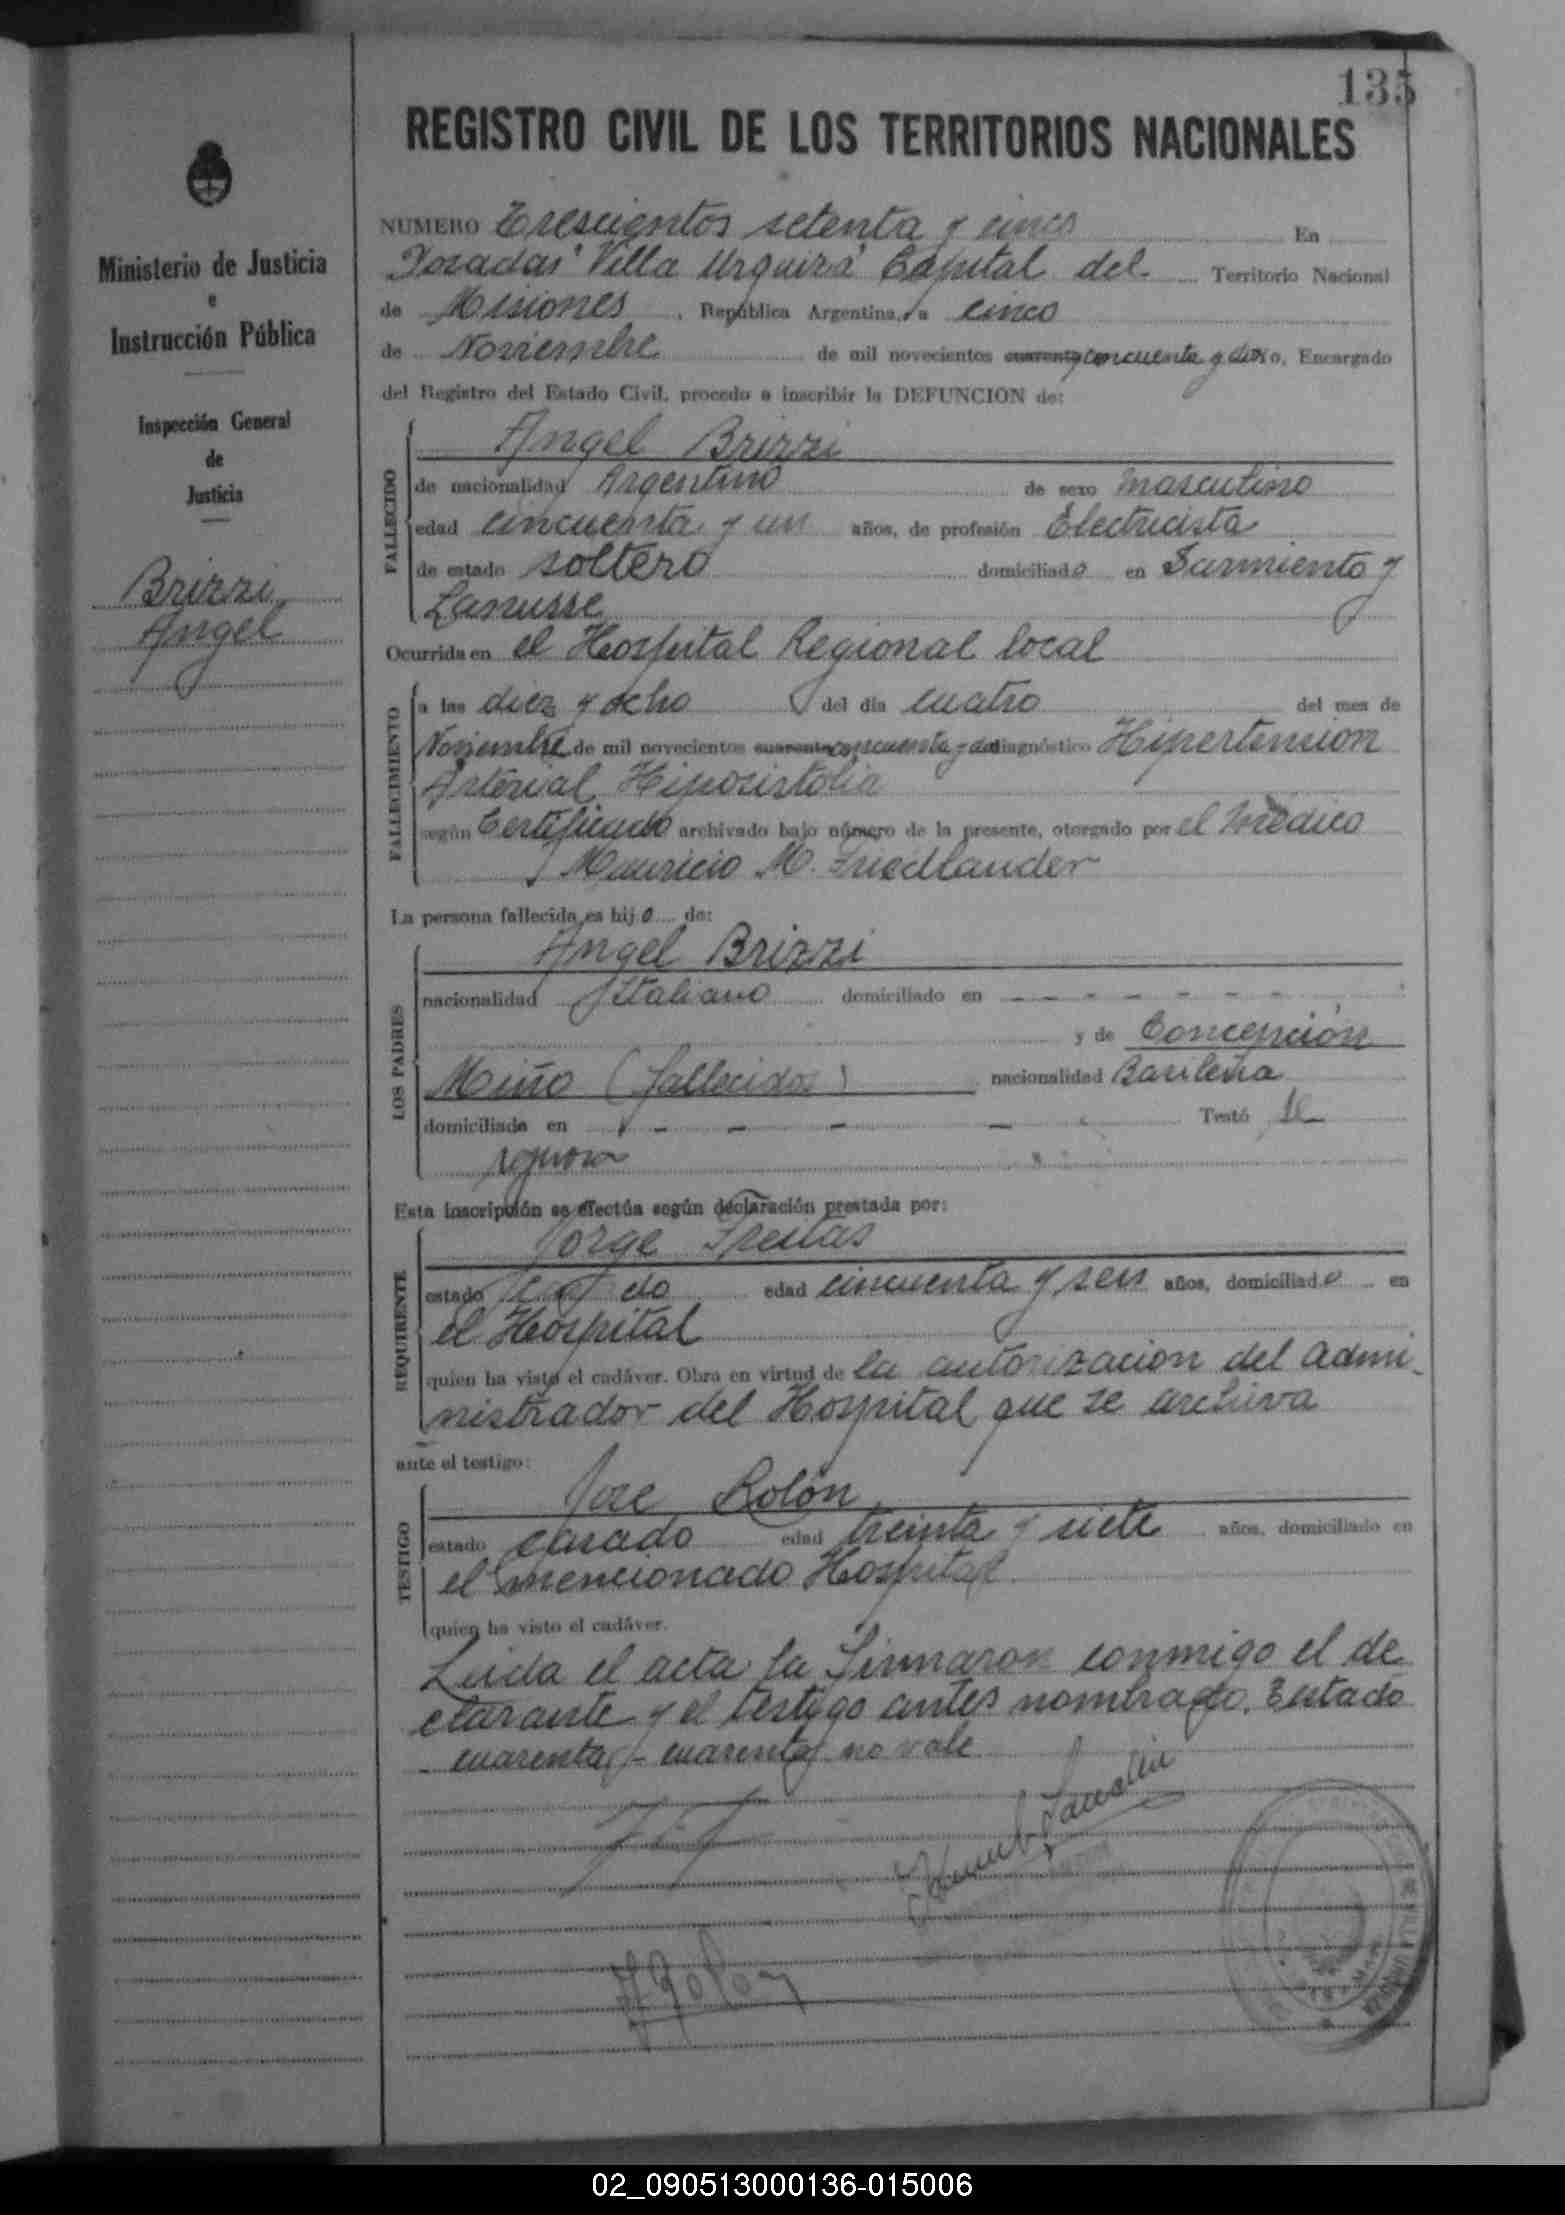 135
REGISTRO CIVIL DE LOS TERRITORIOS NACIONALES
Ministerio de Justicia
e
Instrucción Pública
Inspección General
de
Justicia
Brizzi
Angel
NUMERO Trescientos setenta y cinco En
Posadas "Villa Urquiza" Capital del Territorio Nacional
de Misiones, República Argentina, a cinco
de Noviembre de mil novecientos cuarenta y cincuenta y dos Yo, Encargado
del Registro del Estado Civil, procedo a inscribir la DEFUNCION de:
FALLECIDO
Angel Brizzi
de nacionalidad Argentino de sexo masculino
edad cincuenta y un años, de profesión Electricista
de estado soltero domiciliado en Sarmiento y
Lanusse
Ocurrida en el Hospital Regional local
FALLECIMIENTO
a las diez y ocho del día cuatro del mes de
Noviembre de mil novecientos cuarenta cincuenta y dos diagnóstico Hipertension
Arterial Hiposistolia
según Certificado archivado bajo número de la presente, otorgado por el Médico
Mauricio M. Friedlander
La persona fallecida es hijo de:
LOS PADRES
Angel Brizzi
nacionalidad Italiano domiciliado en - - - - - - -
y de Concepción
Miño (fallecidos) nacionalidad Brasileña
domiciliada en - - - - Testó se
ignora
Esta inscripción se efectúa según declaración prestada por:
REQUIRENTE
Jorge Freitas
estado edad cincuenta y seis años, domiciliado en
el Hospital
quien ha visto el cadáver. Obra en virtud de la autorizacion del admi-
nistrador del Hospital que se archiva
ante el testigo:
TESTIGO
Jose Rolón
estado casado edad treinta y siete años, domiciliado en
el mencionado Hospital
quien ha visto el cadáver.
Leida el acta la firmaron conmigo el de
clarante y el testigo antes nombrado. Testado
- cuarenta y - cuarenta y no vale
02_090513000136-015006